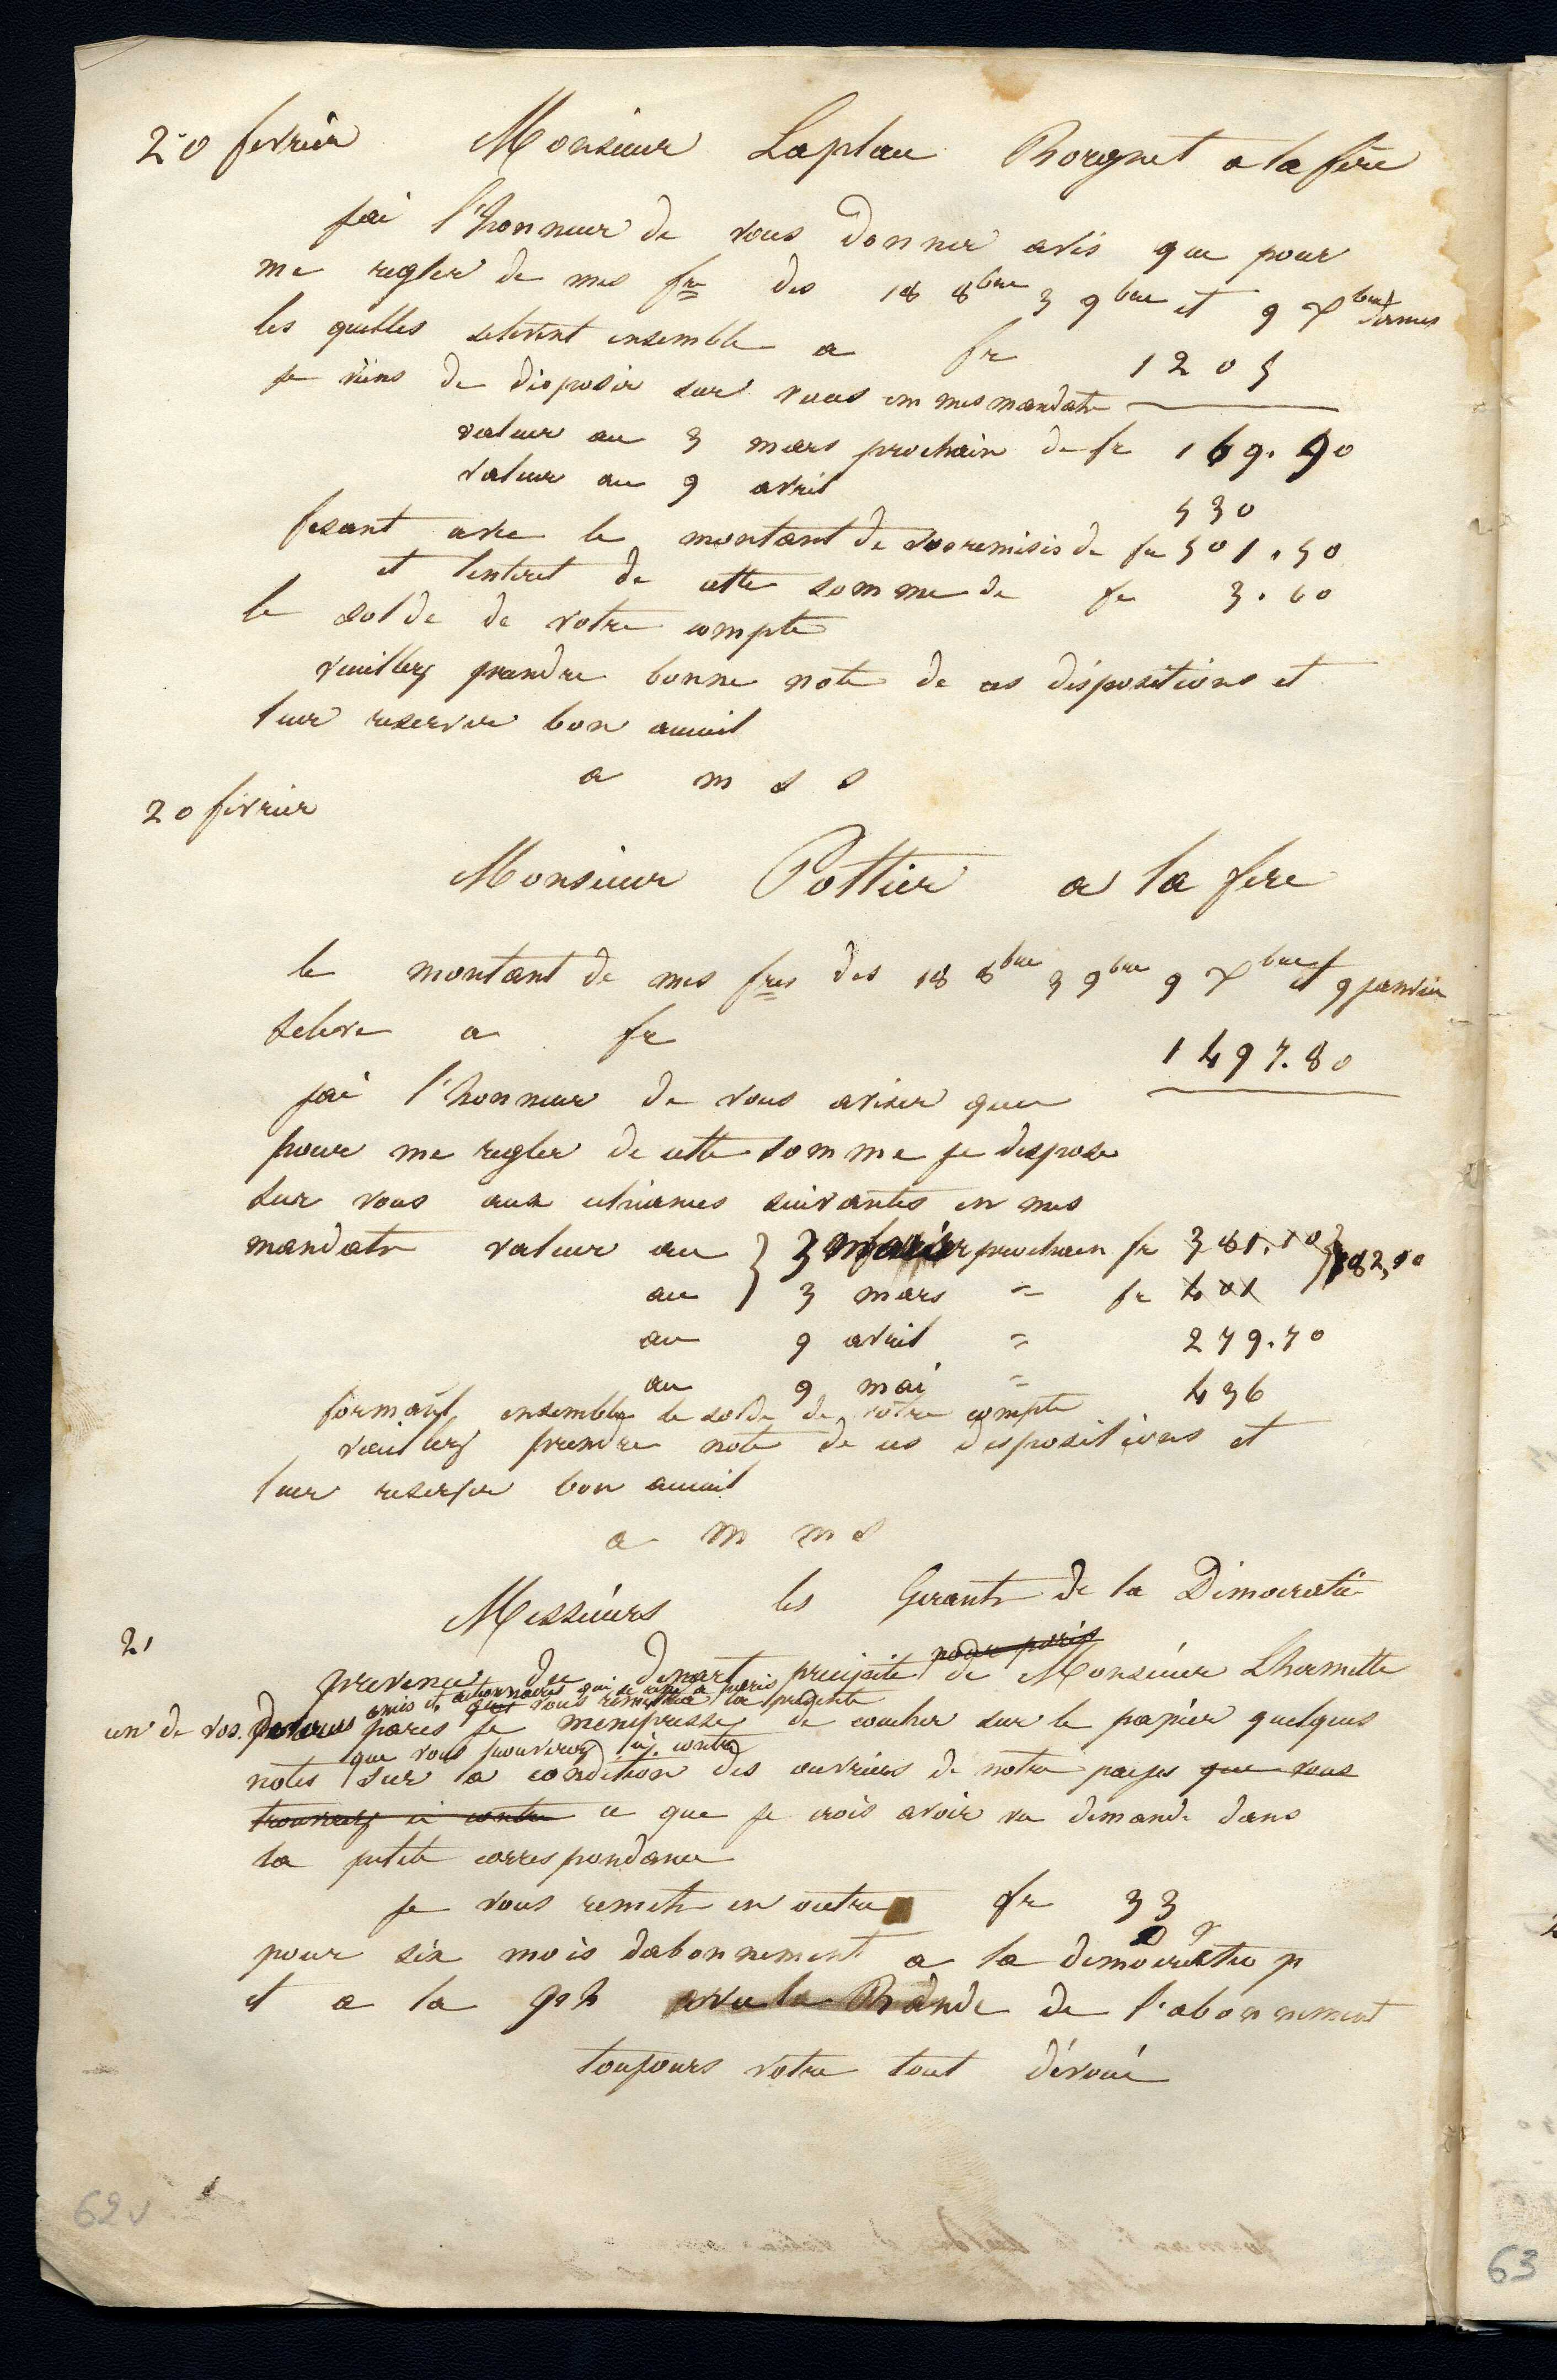 20 fevrier Monsieur Laplau Borgnet a la fere
jai l'honneur de vous donner avis que pour
me regler de mes fres des 18 8bre 3 9bre et 9 Xbre
les quelles selevent ensemble a fr 1205
je viens de disposer sur vous en mes mandats
valeur au 3 mars prochain de fr 169.90
valeur au 9 avril 530
fesant avec le montant de vos remises de fr 501.50
et linteret de cette somme de fr 3.60
le solde de votre compte
veuillez prendre bonne note de ces dispositions et
leur reserver bon acceuil
a m s s
20 fevrier
Monsieur Pottier a la fere
le montant de mes fres des 18 8bre 3 9bre 9 Xbre et 9 janvier
seleve a fr 1497.80
jai l'honneur de vous aviser que
pour me regler de cette somme je dispose
sur vous aux echeances suivantes en mes
mandats valeur au 3 prochain fr 381.10 782,10
au 3 mars = fr 401
au 9 avril = 279.70
au 9 mai = 436
formant ensemble le solde de votre compte
veuillez prendre note de ces dispositions et
leur reserver bon acceuil
a m m s
Messieurs les Gerants de la Democratie
21
pour paris
prevenu du depart precipité de Monsieur Lhermitte
amis et actionnaires qui se rend a paris que vous remettra la presente
un de vos pares je mempresse de coucher sur le papier quelques
que vous trouverez ci contre
notes sur la condition des ouvriers de notre pays que vous
trouverez ci contre ce que je crois avoir vu demandé dans
la petite correspondance
je vous remets en outre fr 33
pour six mois dabonnement a la democratie p
et a la avec la Bande de l'abonnement
toujours votre tout dévoué
62v
63